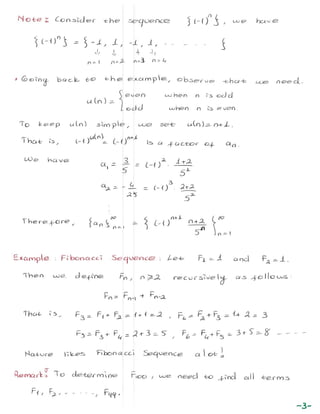 Note: Consider the sequence {(-1)^n}, we have
{(-1)^n} = {-1, 1, -1, 1, ....... }
↓ ↓ ↓ ↓
n=1 n=2 n=3 n=4
* Going back to the example, observe that we need
u(n) = { even when n is odd
odd when n is even
To keep u(n) simple, we set u(n) = n+1.
That is, (-1)^{u(n)} = (-1)^{n+1} is a factor of a_n.
We have
a_1 = 3/5 = (-1)^2 · 1+2/5^1
a_2 = -4/25 = (-1)^3 2+2/5^2
⋮
Therefore, {a_n}_{n=1}^∞ = { (-1)^{n+1} n+2/5^n }_{n=1}^∞
Example: Fibonacci Sequence: Let F_1 = 1 and F_2 = 1.
Then we define F_n, n⩾2 recursively as follows:
F_n = F_{n-1} + F_{n-2}
That is, F_3 = F_1 + F_2 = 1+1 = 2, F_4 = F_2 + F_3 = 1+2 = 3
F_5 = F_3 + F_4 = 2+3 = 5, F_6 = F_4 + F_5 = 3+5 = 8 ----
Nature likes Fibonacci Sequence a lot!
Remark: To determine F_100, we need to find all terms
F_1, F_2, ------, F_99.
-3-